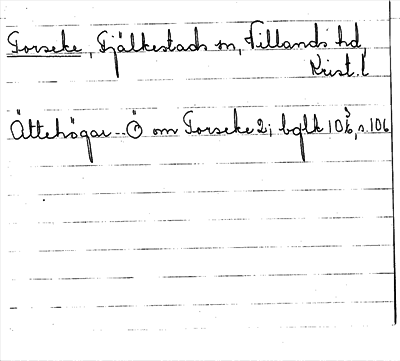 Torseke, Fjälkestads sn, Villands hd,
Krist. l
Ättehögar -- Ö om Torseke 2; bglk 10 s. 106